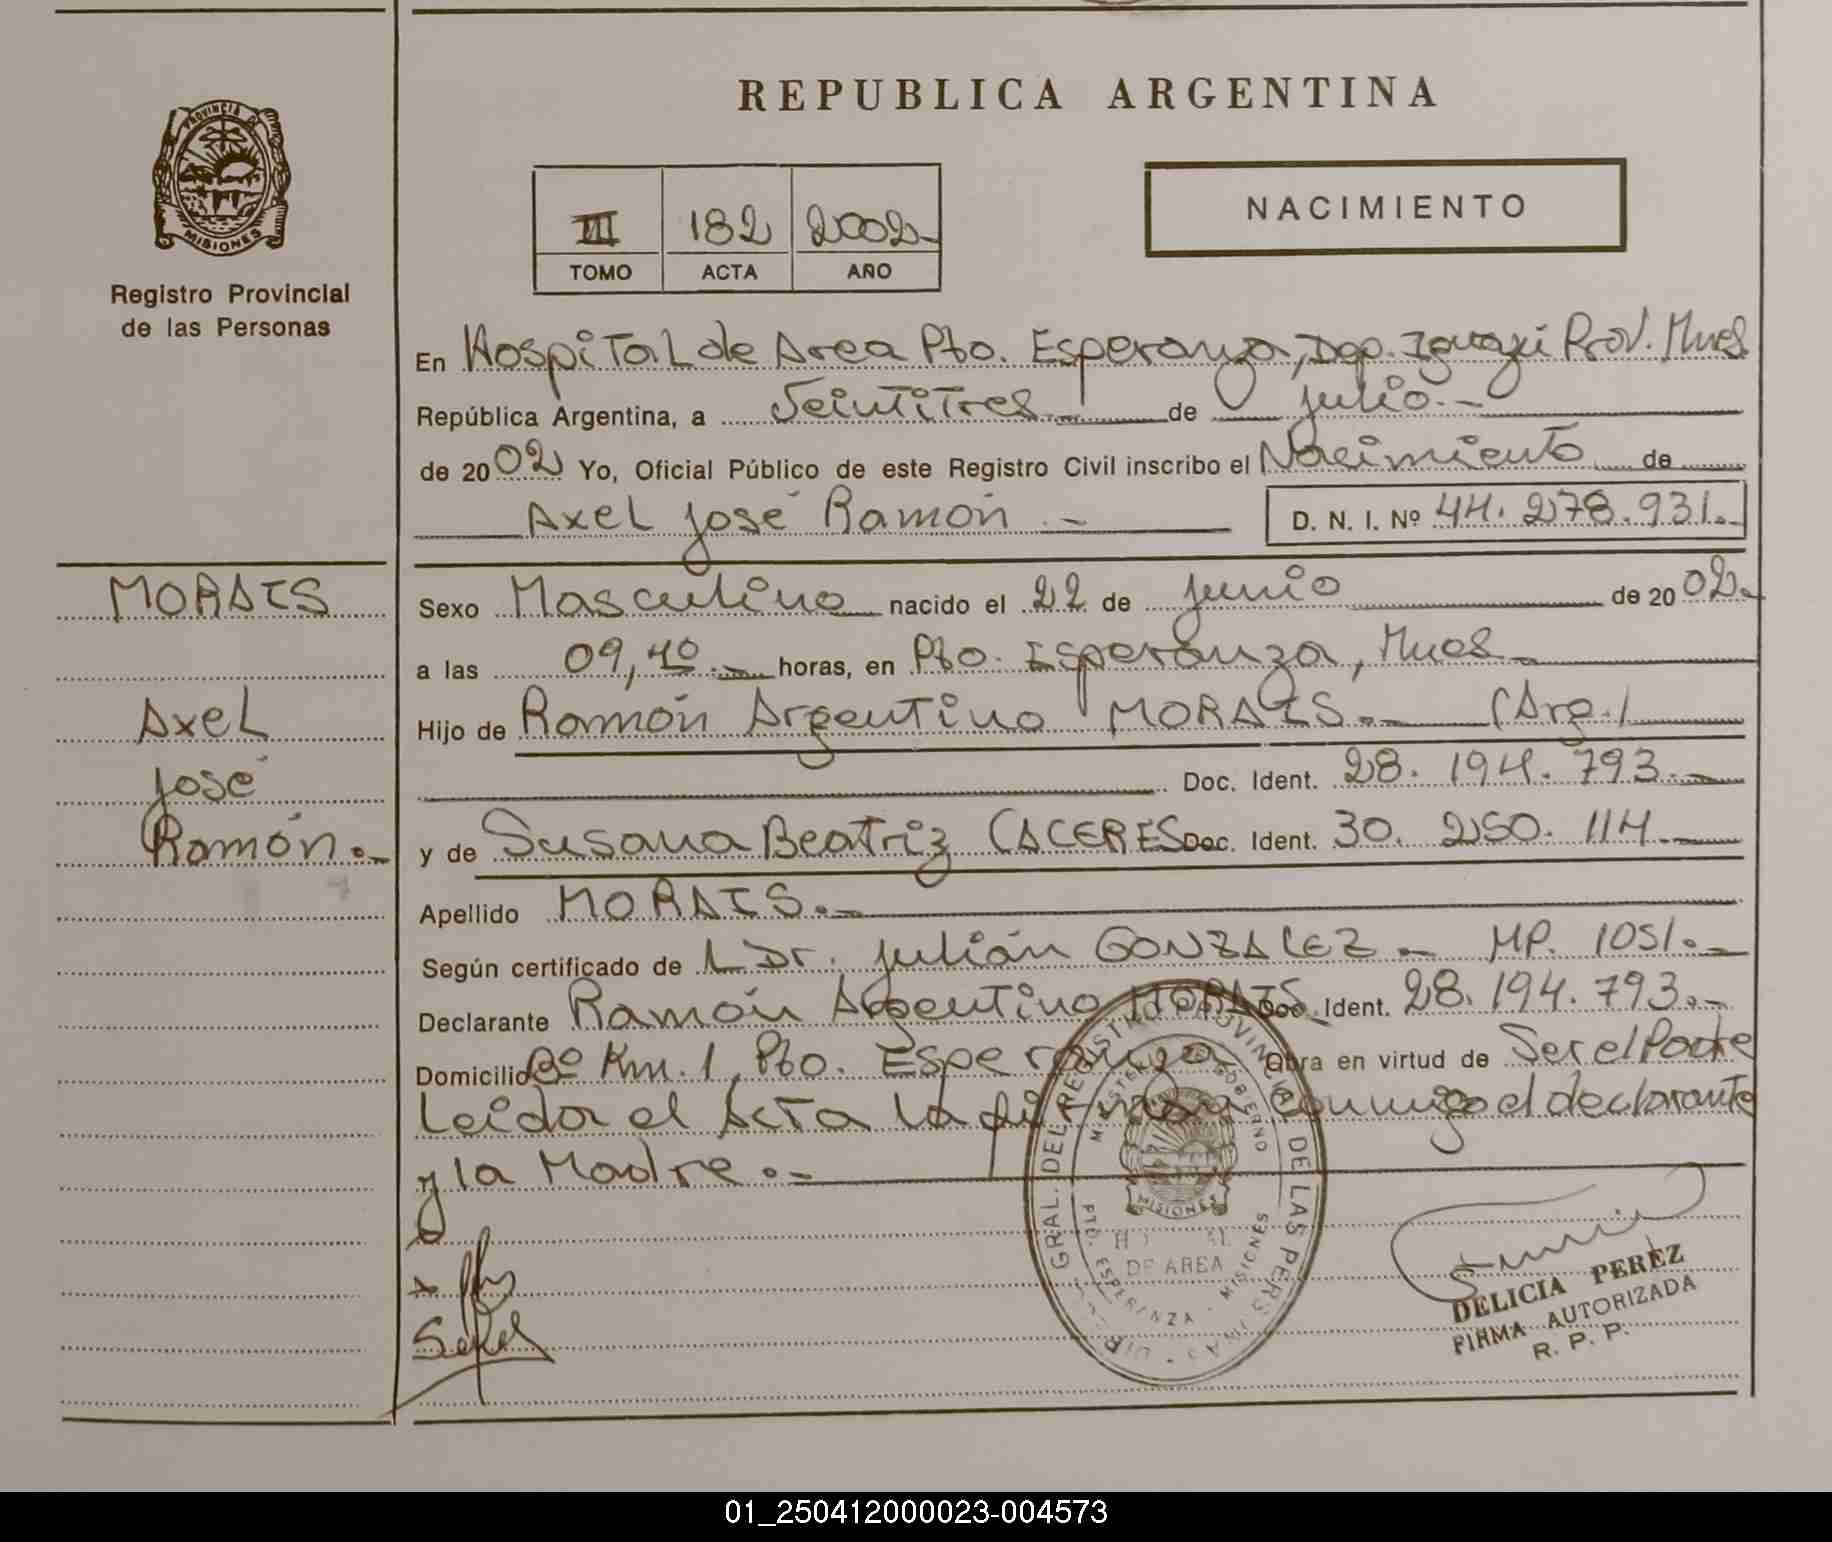 REPUBLICA ARGENTINA
PROVINCIA DE
MISIONES
Registro Provincial
de las Personas
III 182 2002
TOMO ACTA AÑO
NACIMIENTO
En Hospital de Area Pto. Esperanza, Dep. Iguazú Prov. Mnes
República Argentina, a Veintitres de julio.-
de 2002 Yo, Oficial Público de este Registro Civil inscribo el Nacimiento de
Axel José Ramón.- D. N. I. Nº 44.278.931.-
MORAIS
Axel
José
Ramón.-
Sexo Masculino nacido el 22 de junio de 2002.-
a las 09,40.- horas, en Pto. Esperanza, Mnes.-
Hijo de Ramón Argentino MORAIS.- (Arg.)
Doc. Ident. 28.194.793.-
y de Susana Beatriz CACERES Doc. Ident. 30.250.114.-
Apellido MORAIS.-
Según certificado de L Dr. Julián GONZALEZ.- MP. 1051.-
Declarante Ramón Argentino MORAIS Doc. Ident. 28.194.793.-
Domicilio Bº Km. 1, Pto. Esperanza Obra en virtud de Ser el Padre
Leida el Acta la firman conmigo el declarante
y la Madre.-
GRAL. DEL REGISTRO PROVINCIAL DE LAS PERSONAS
MINISTERIO GOBIERNO
MISIONES
DE AREA
PTO. ESPERANZA - MISIONES
DELICIA PEREZ
FIRMA AUTORIZADA
R. P. P.
01_250412000023-004573